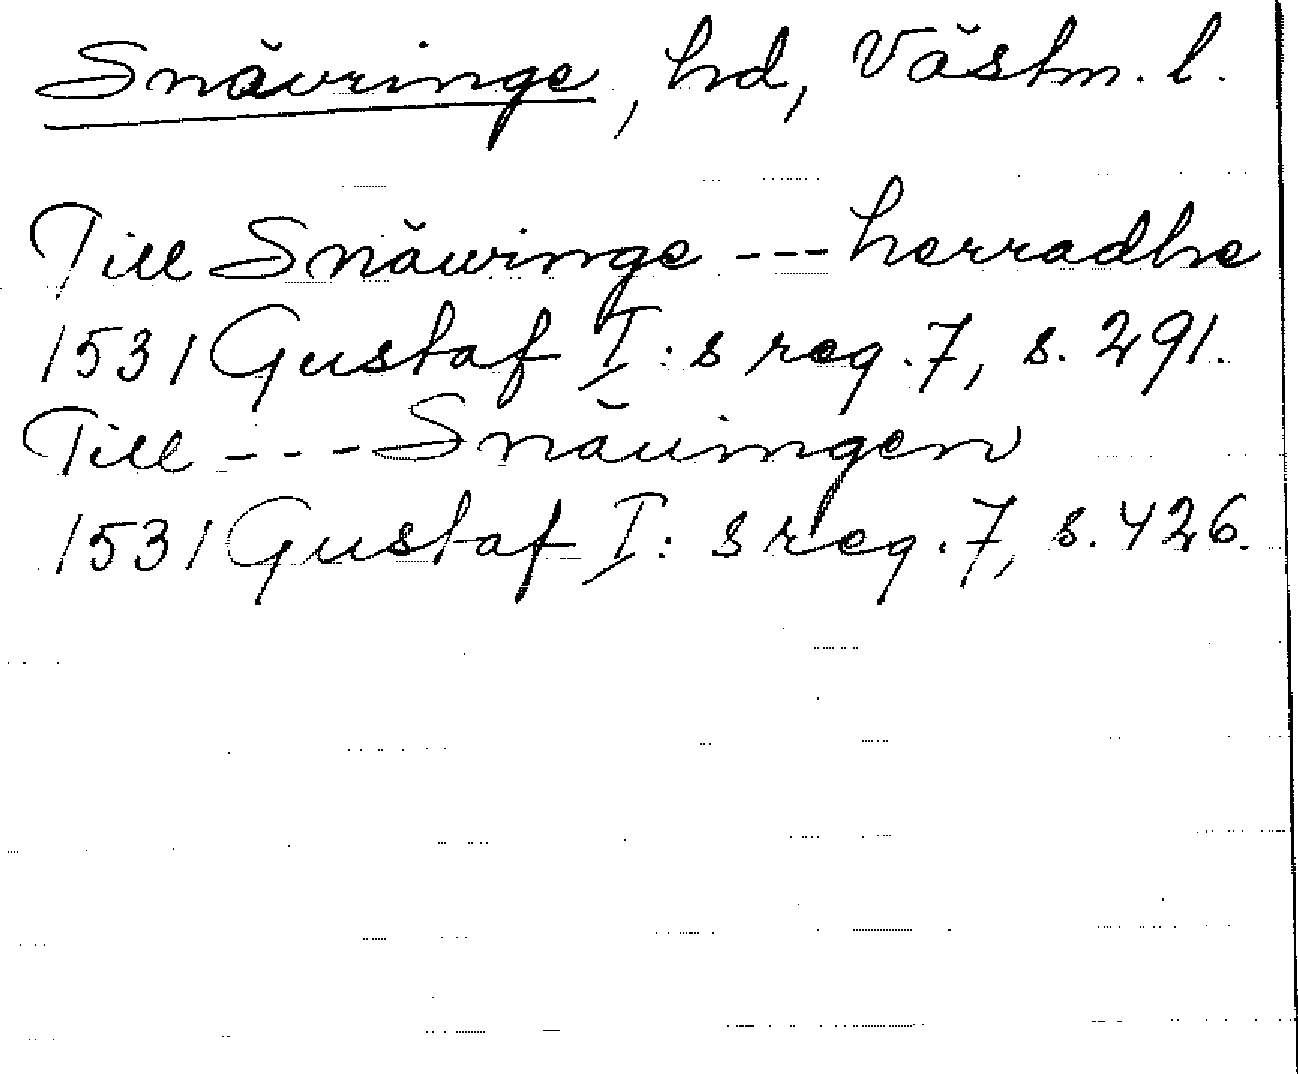 Snävringe, hd, Västm. l.
Till Snäwringe --- herradhe
1531 Gustaf I:s reg. 7, s. 291.
Till --- Snäuingen
1531 Gustaf I:s reg. 7, s. 426.